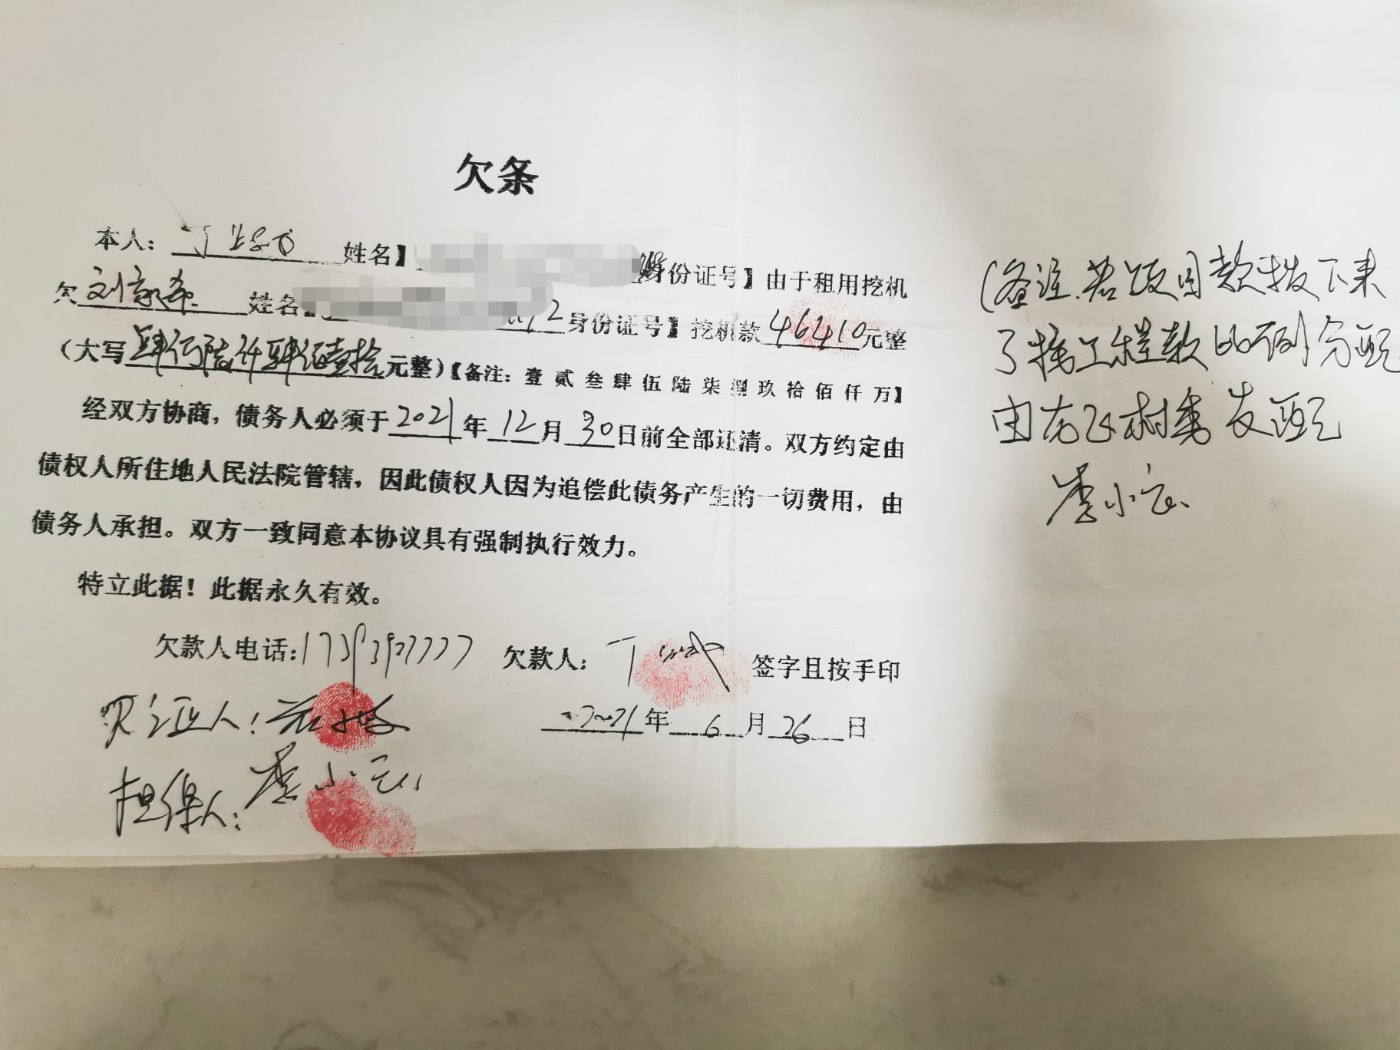 欠条
本人：丁 姓名】 身份证号】由于租用挖机
欠刘 姓名 12身份证号】挖机款46410元整
（大写肆万陆仟肆佰壹拾元整）【备注：壹贰叁肆伍陆柒捌玖拾佰仟万】
经双方协商，债务人必须于2021年12月30日前全部还清。双方约定由
债权人所住地人民法院管辖，因此债权人因为追偿此债务产生的一切费用，由
债务人承担。双方一致同意本协议具有强制执行效力。
特立此据！此据永久有效。
欠款人电话： 欠款人：丁 签字且按手印
2021年6月26日
见证人：
担保人：李小云
（备注.若项目款拨下来
了按工程款比例分配
由 村委发配
李小云